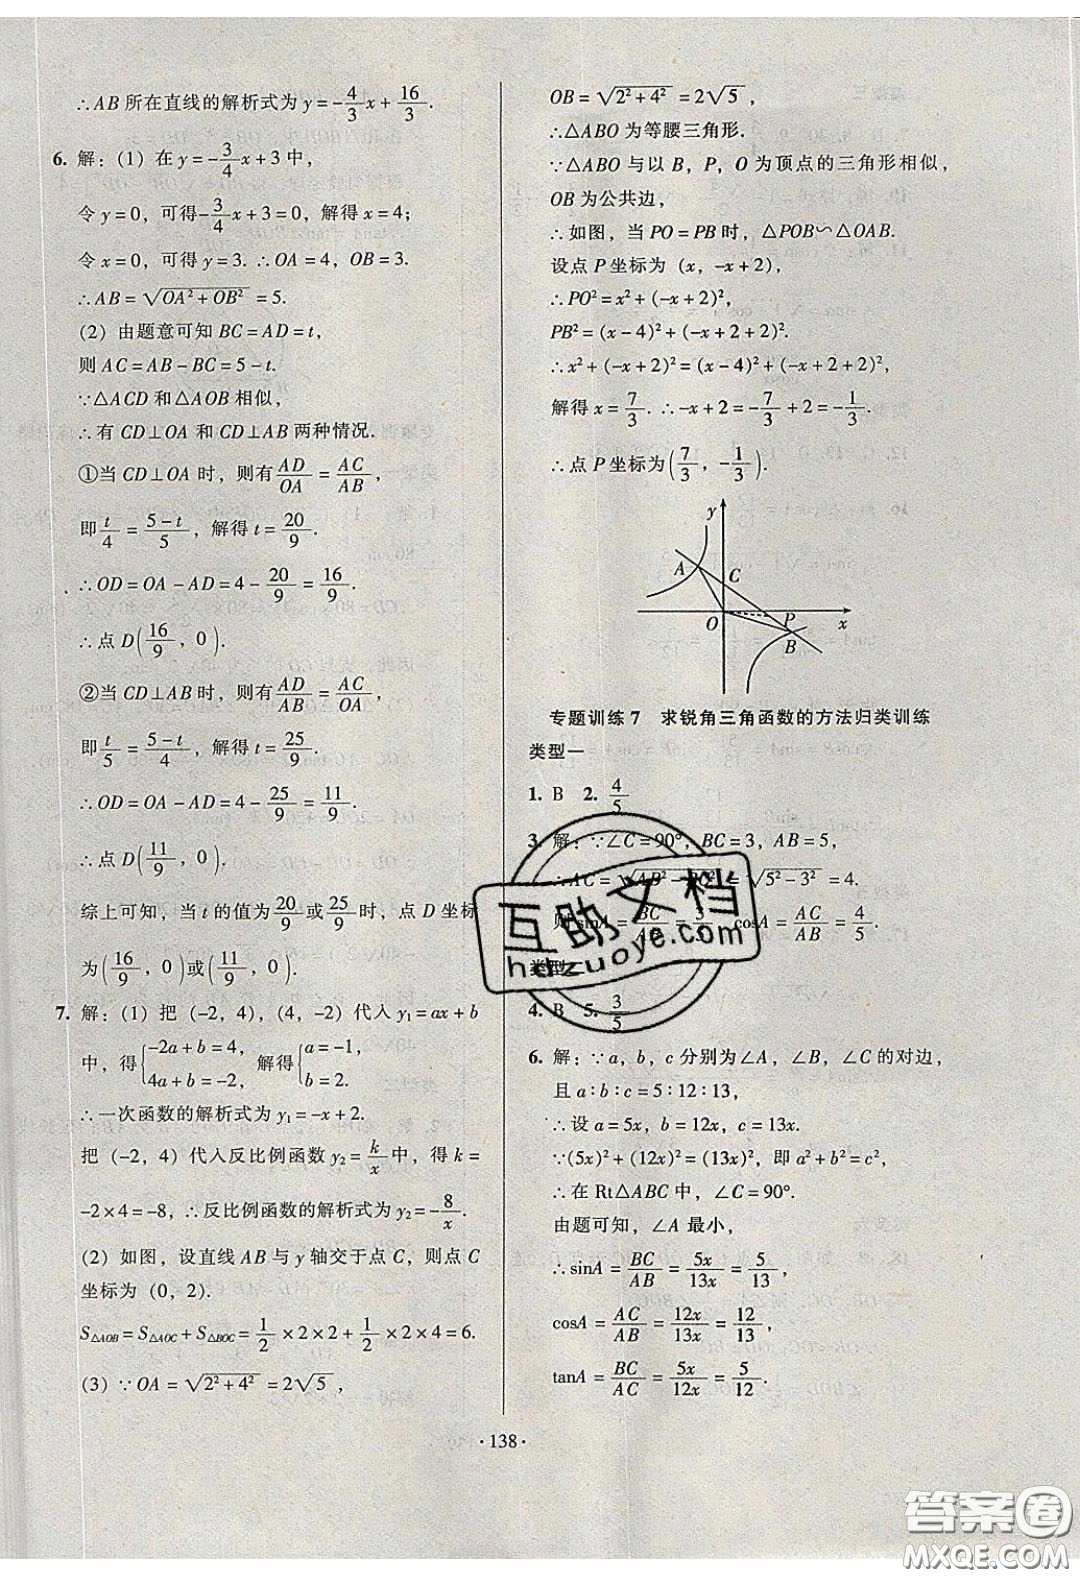 ∴AB所在直线的解析式为y=-4/3x+16/3.
6. 解：(1) 在y=-3/4x+3中，
令y=0，可得-3/4x+3=0，解得x=4；
令x=0，可得y=3. ∴OA=4，OB=3.
∴AB=√(OA²+OB²)=5.
(2) 由题意可知BC=AD=t，
则AC=AB-BC=5-t.
∵△ACD和△AOB相似，
∴有CD⊥OA和CD⊥AB两种情况.
①当CD⊥OA时，则有AD/OA=AC/AB，
即t/4=(5-t)/5，解得t=20/9.
∴OD=OA-AD=4-20/9=16/9.
∴点D(16/9，0).
②当CD⊥AB时，则有AD/AB=AC/OA，
即t/5=(5-t)/4，解得t=25/9.
∴OD=OA-AD=4-25/9=11/9.
∴点D(11/9，0).
综上可知，当t的值为20/9或25/9时，点D坐标
为(16/9，0)或(11/9，0).
7. 解：(1) 把 (-2，4)，(4，-2) 代入y₁=ax+b
中，得{-2a+b=4，4a+b=-2，解得{a=-1，b=2.
∴一次函数的解析式为y₁=-x+2.
把 (-2，4) 代入反比例函数y₂=k/x中，得k=
-2×4=-8，∴反比例函数的解析式为y₂=-8/x.
(2) 如图，设直线AB与y轴交于点C，则点C
坐标为 (0，2).
S△AOB=S△AOC+S△BOC=1/2×2×2+1/2×2×4=6.
(3) ∵OA=√(2²+4²)=2√5，
OB=√(2²+4²)=2√5，
∴△ABO为等腰三角形.
∵△ABO与以B，P，O为顶点的三角形相似，
OB为公共边，
∴如图，当PO=PB时，△POB∽△OAB.
设点P坐标为 (x，-x+2)，
∴PO²=x²+(-x+2)²，
PB²=(x-4)²+(-x+2+2)².
∴x²+(-x+2)²=(x-4)²+(-x+2+2)²，
解得x=7/3. ∴-x+2=-7/3+2=-1/3.
∴点P坐标为(7/3，-1/3).
y
A
C
O
P
x
B
专题训练7 求锐角三角函数的方法归类训练
类型一
1. B 2. 4/5
3. 解：∵∠C=90°，BC=3，AB=5，
∴AC=√(AB²-BC²)=√(5²-3²)=4.
则sinA=BC/AB=3/5，cosA=AC/AB=4/5.
类型二
4. B 5. 3/5
6. 解：∵a，b，c分别为∠A，∠B，∠C的对边，
且a∶b∶c=5∶12∶13，
∴设a=5x，b=12x，c=13x.
∵(5x)²+(12x)²=(13x)²，即a²+b²=c²，
∴在Rt△ABC中，∠C=90°.
由题可知，∠A最小，
∴sinA=BC/AB=5x/13x=5/13，
cosA=AC/AB=12x/13x=12/13，
tanA=BC/AC=5x/12x=5/12.
·138·
互助文档
hdzuoye.com
答案圈
MXQE.COM